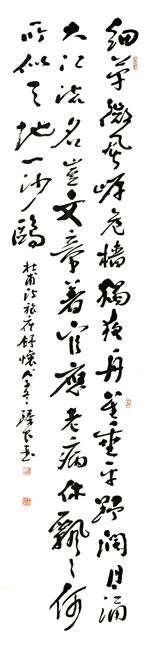 細草微風岸危檣獨夜舟星垂平野闊月涌
大江流名豈文章著官應老病休飄〻何
所似天地一沙鷗
杜甫詩旅夜舒懷